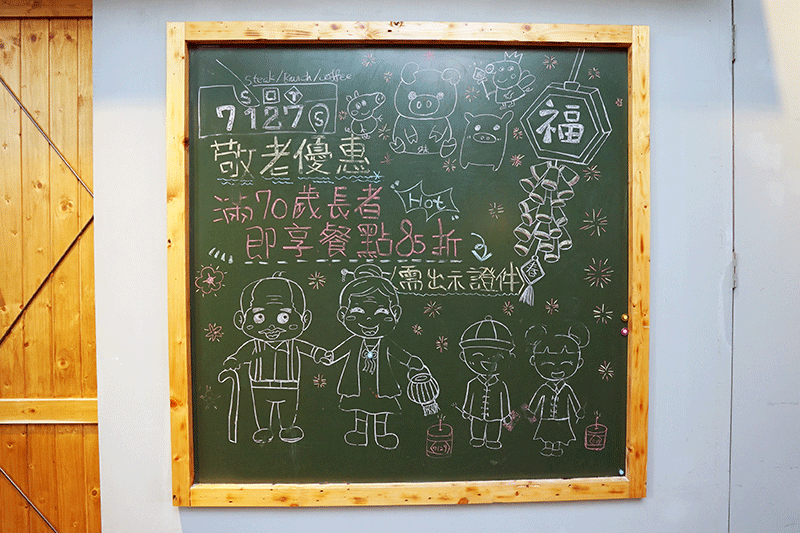 Steak/Lunch/coffee
S 口 T
7127 S
福
敬老優惠
滿70歲長者
Hot
即享餐點85折
需出示證件
春
7127